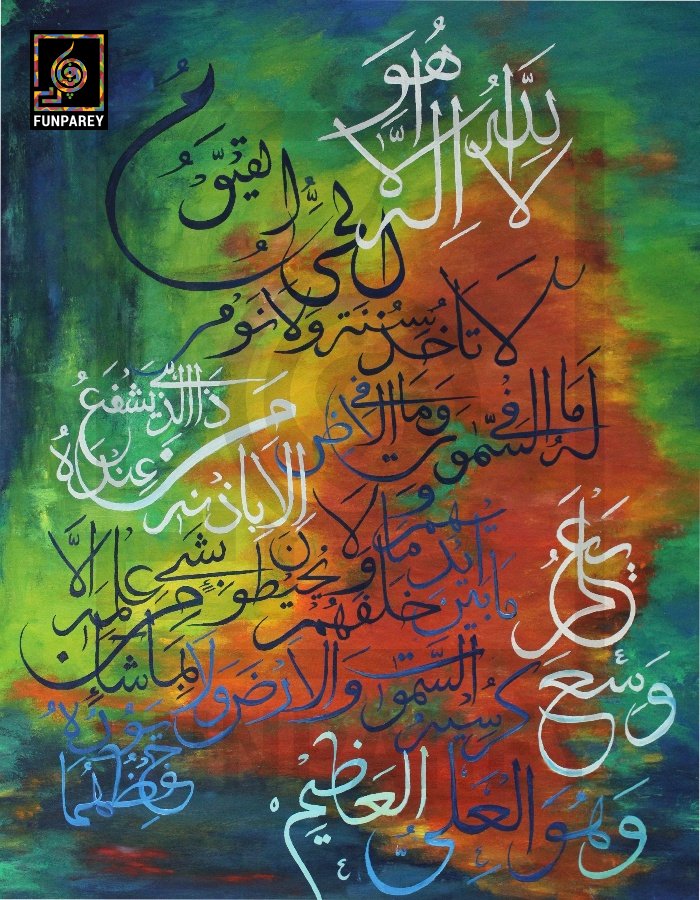 FUNPAREY
اللهُ لَا إِلٰهَ إِلَّا هُوَ
الحَيُّ القَيُّومُ
لَا تَاخُذُهُ سِنَةٌ وَلَا نَوْمٌ
لَهُ مَا فِي السَّمٰوٰتِ وَمَا فِي الْاَرْضِ
مَنْ ذَا الَّذِي يَشْفَعُ عِنْدَهُ
إِلَّا بِإِذْنِهِ
يَعْلَمُ مَا بَيْنَ اَيْدِيهِمْ وَمَا خَلْفَهُمْ
وَلَا يُحِيطُونَ بِشَيْءٍ مِنْ عِلْمِهِ إِلَّا بِمَا شَاءَ
وَسِعَ كُرْسِيُّهُ السَّمٰوٰتِ وَالْاَرْضَ وَلَا يَؤُدُهُ حِفْظُهُمَا
وَهُوَ العَلِيُّ العَظِيمُ